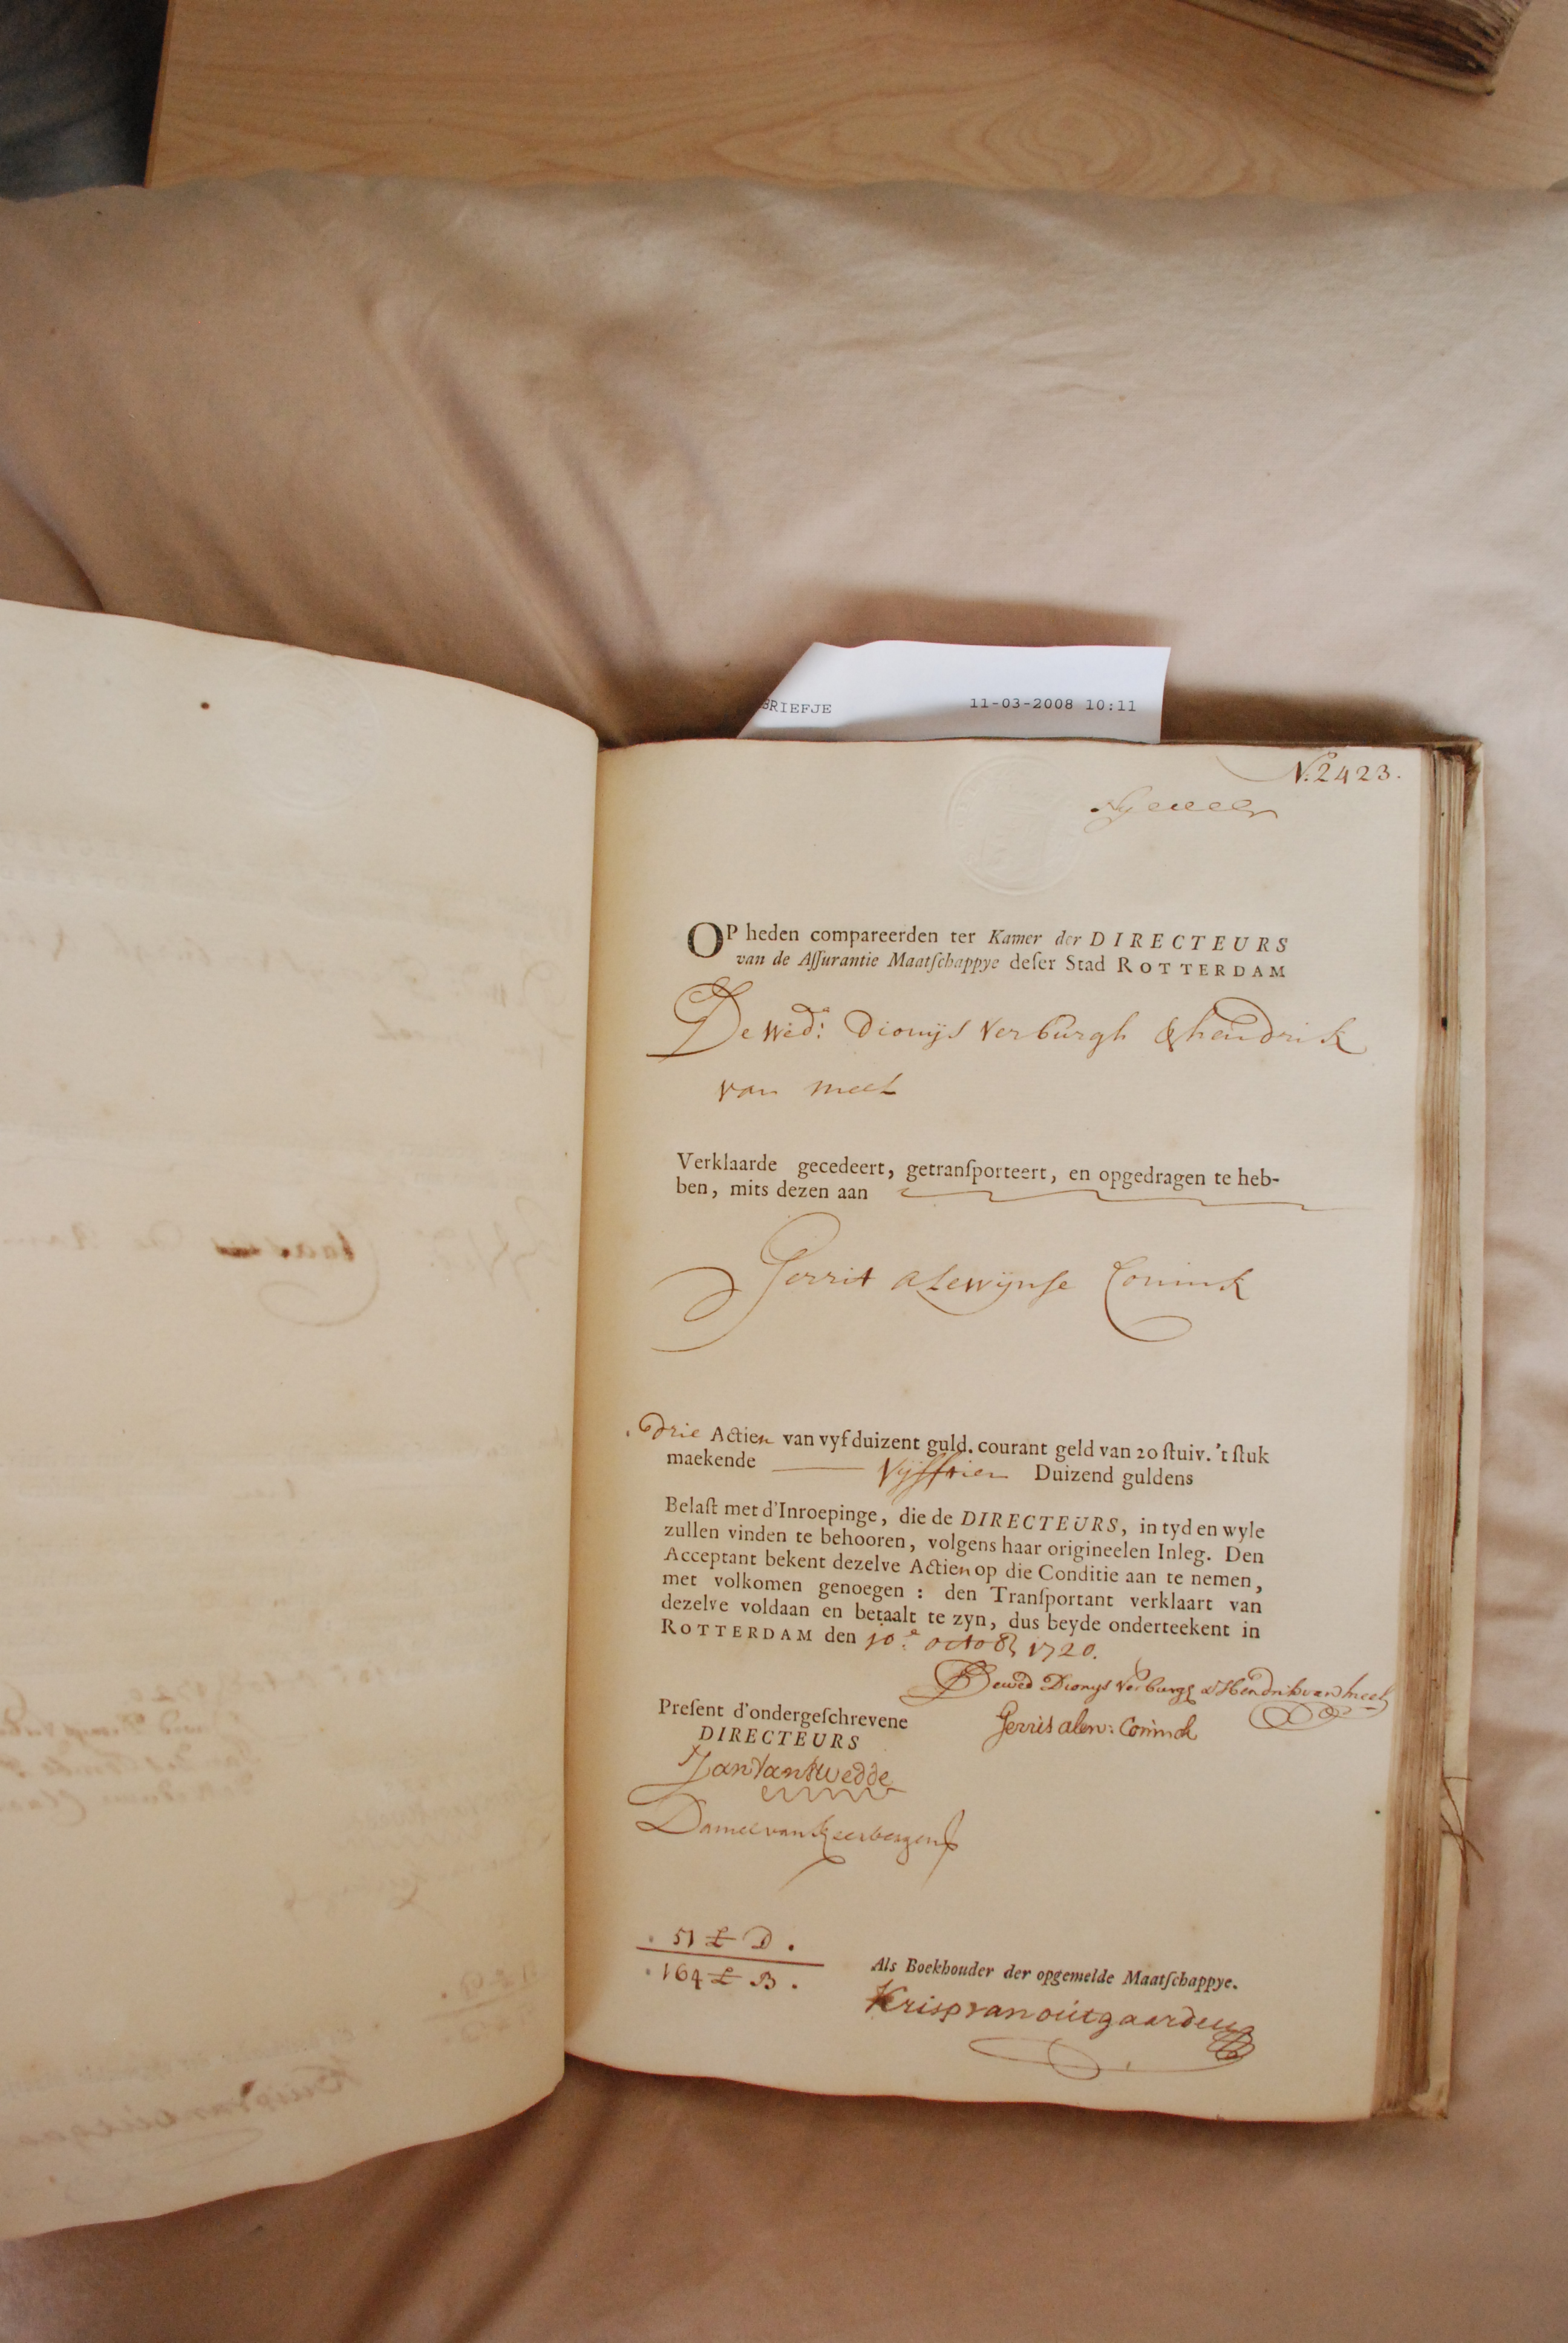 GRIEFJE 11-03-2008 10:11
N.º 2423.
OP heden compareerden ter Kamer der DIRECTEURS
van de Aſſurantie Maatſchappye deſer Stad ROTTERDAM
De Wedᵉ: Dionijs Verburgh & hendrik
van meel
Verklaarde gecedeert, getranſporteert, en opgedragen te heb-
ben, mits dezen aan
Gerrit alewijnse Coninck
Drie Actien van vyf duizent guld. courant geld van 20 ſtuiv. 't ſtuk
maekende Vijfftien Duizend guldens
Belaſt met d'Inroepinge, die de DIRECTEURS, in tyd en wyle
zullen vinden te behooren, volgens haar origineelen Inleg. Den
Acceptant bekent dezelve Actien op die Conditie aan te nemen,
met volkomen genoegen : den Tranſportant verklaart van
dezelve voldaan en betaalt te zyn, dus beyde onderteekent in
ROTTERDAM den 10.ᵉ octob 1720.
De wed Dionys Verburgh & Hendrik van meel
Preſent d'ondergeſchrevene
Gerrit alew: Coninck
DIRECTEURS
Jan Van Twedde
Daniel van Keerbergen
51 £ D.
164 £ B.
Als Boekhouder der opgemelde Maatſchappye.
Krisp van outgaarden